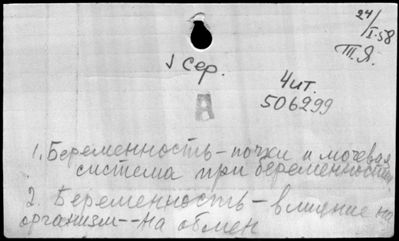 24/I-58
Т.Я.
√ Сер.
Чит.
506299
А
1. Беременность - почки и мочевая
система при беременности
2. Беременность - влияние на
организм -- на обмен